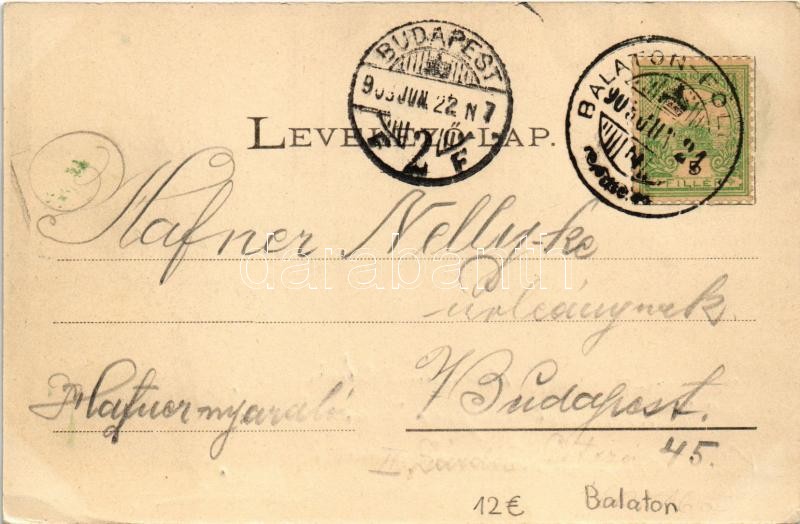 BUDAPEST
903 JUN. 22. N 7
2
F
BALATON-
903 JUN 21
FILLÉR
LEVELEZŐ-LAP.
Hafner Nellyke
darabanth
úrleánynak
Hafner nyaraló.
Budapest.
II. 45.
12€ Balaton